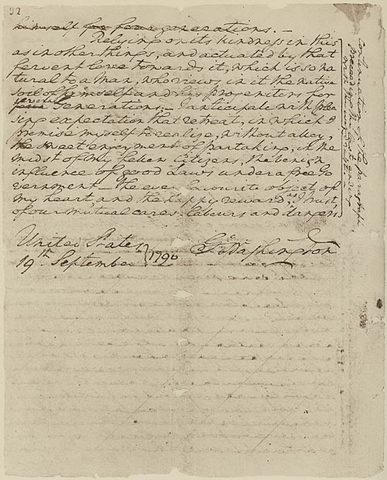 32
himself for four generations. —
Relying on its kindness in this
as in other things, and actuated by that
fervent love towards it, which is so na-
tural to a man, who views in it the native
soil of himself and his progenitors for
several
four Generations. — I anticipate with plea-
sing expectation that retreat, in which I
promise myself to realize, without alloy,
the sweet enjoyment of partaking, in the
midst of my fellow Citizens, the benign
influence of good Laws under a free Go-
vernment — the ever favourite object of
my heart, and the happy reward, as I trust,
of our mutual cares, labours and dangers
United States
19th September } 1796
Go. Washington